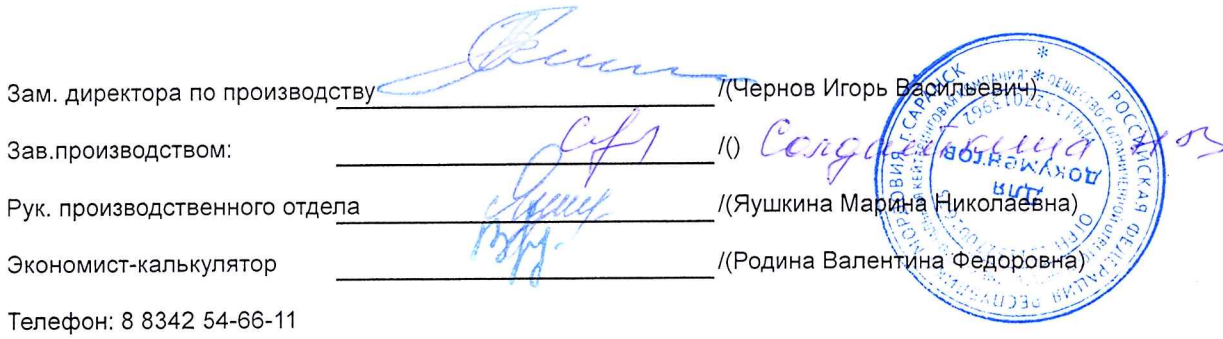 Зам. директора по производству /(Чернов Игорь Васильевич)
Зав.производством: /() Солдаткина
Рук. производственного отдела /(Яушкина Марина Николаевна)
Экономист-калькулятор /(Родина Валентина Федоровна)
Телефон: 8 8342 54-66-11
РОССИЙСКАЯ ФЕДЕРАЦИЯ
Г. САРАНСК
Для
документов